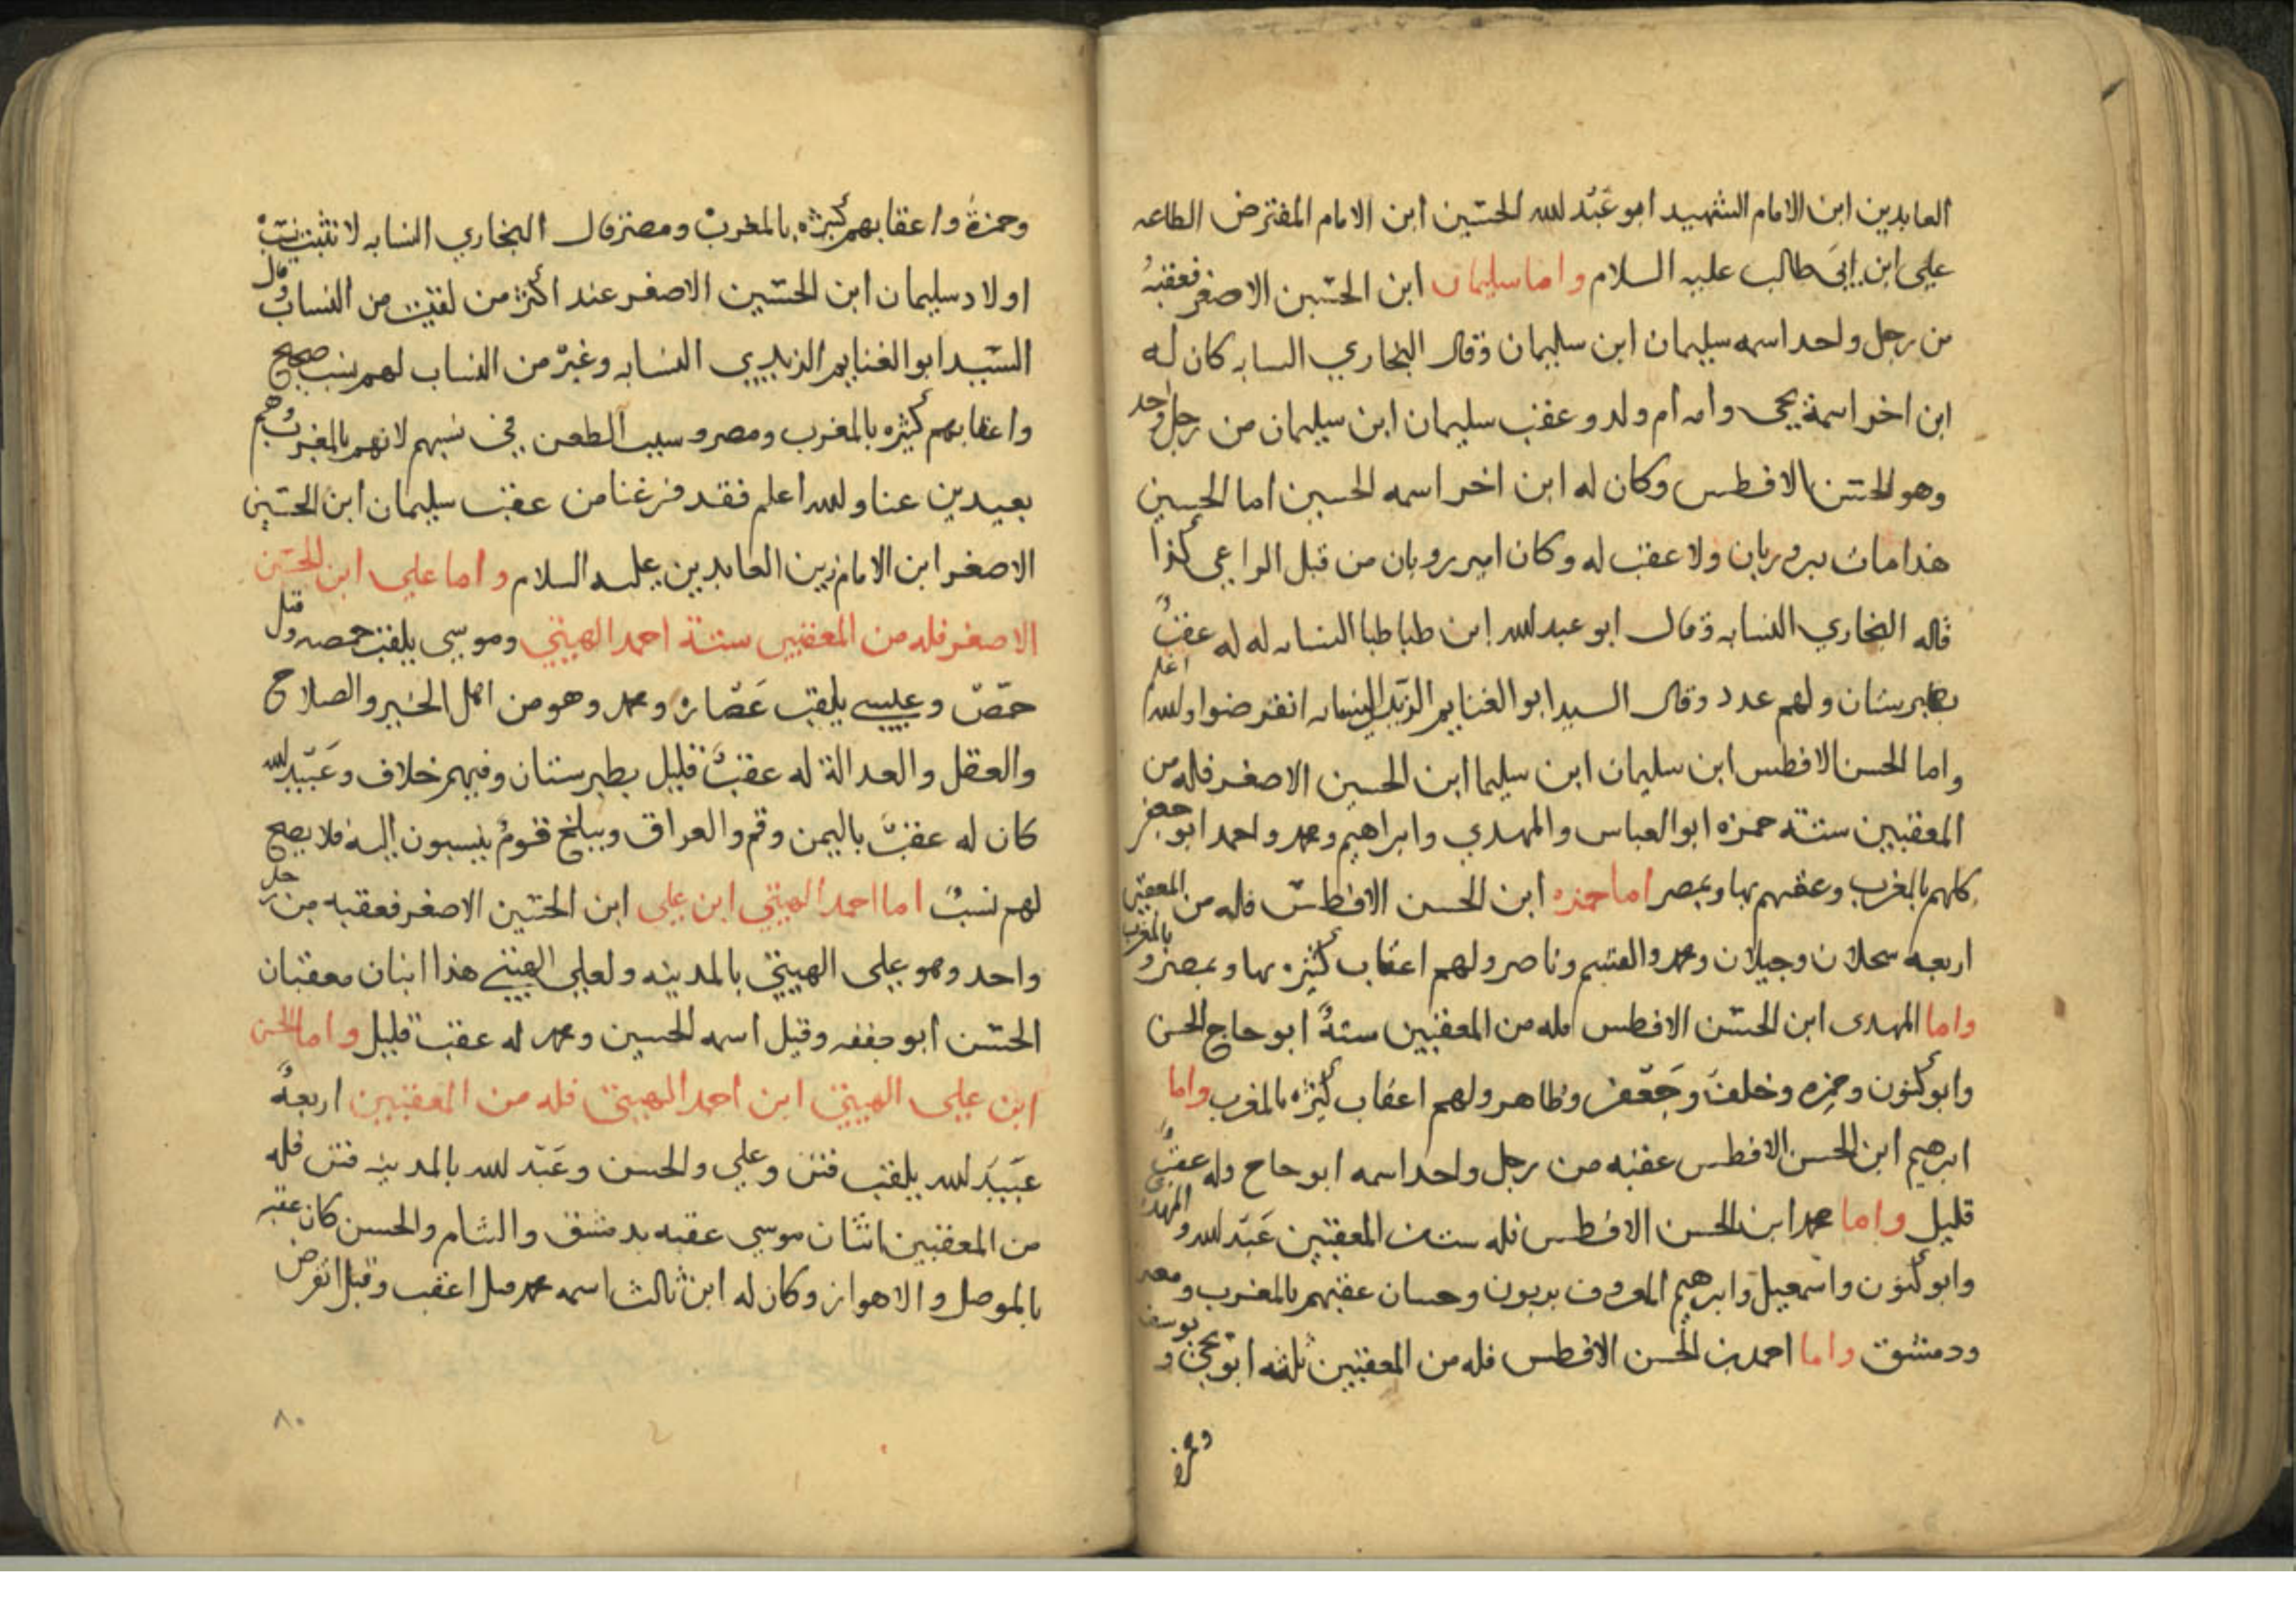 العابدين ابن الامام الشهيد ابو عَبْد الله الحسَين ابن الامام المفترض الطاعه
علي ابن ابي طالب عليه السلام واما سليمان ابن الحسَين الاصغر فعقبهُ
من رجل واحد اسمه سليمان ابن سليمان وقال البخاري النسابه كان له
ابن اخر اسمه يحيى وامه ام ولد وعقب سليمان ابن سليمان من رجل واحد
وهو الحسن الافطس وكان له ابن اخر اسمه الحسين اما الحسين
هذا مات برويان ولا عقب له وكان امير رويان من قبل الداعي كذا
قاله البخاري النسابه وقال ابو عبد الله ابن طباطبا النسابه له عقبٌ
بطبرستان ولهم عدد وقال السيد ابو الغنايم الزيدي النسابه انقرضوا والله اعلم
واما الحسن الافطس ابن سليمان ابن سليما ابن الحسين الاصغر فله من
المعقبين ستة حمزه ابو العباس والمهدي وابراهيم ومحمد واحمد ابو جعفر
كلهم بالمغرب وعقبهم بها وبمصر اما حمزه ابن الحسن الافطس فله من المعقبين
اربعه وجيلان ومحمد والقسم وناصر ولهم اعقاب كثيره بها وبمصر وبالمغرب
واما المهدى ابن الحسَن الافطس فله من المعقبين ستةٌ ابو حاج الحسن
وابو كنون وحمزه وخلف وجَعْفر وطاهر ولهم اعقاب كثيره بالمغرب واما
ابرهيم ابن الحسن الافطس عقبه من رجل واحد اسمه ابو حاج وله عقبٌ
قليل واما محمد ابن الحسن الافطس فله ستت المعقبين عَبْد الله والمهدى
وابو كنون واسمعيل وابرهيم المعروف بربون وحسان عقبهم بالمغرب ومصر
ودمشق واما احمد بن الحسن الافطس فله من المعقبين ثلثه ابو يحيى ويوسف
وحمزة
وحمزةُ واعقابهم كثيره بالمغرب ومصر قال البخاري النسابه لا تثبت نسَب
اولاد سليمان ابن الحسَين الاصغر عند اكثر من لقيت من النساب وقال
السَيد ابو الغنايم الزيدي النسابه وغيره من النساب لهم نسب صحيح
واعقابهم كثيره بالمغرب ومصر وسبب الطعن في نسبهم لانهم بالمغرب وهم
بعيدين عنا والله اعلم فقد فرغنا من عقب سليمان ابن الحسَين
الاصغر ابن الامام زين العابدين عليه السلام واما علي ابن الحسَين
الاصغر فله من المعقبين ستة احمد الهيتي وموسي يلقب حمصه وقيل
حمّص وعيسي يلقب غَضّاره ومحمد وهو من اهل الخير والصلاح
والعقل والعدالة له عقبٌ قليل بطبرستان وفيهم خلاف وعَبَيد الله
كان له عقبٌ باليمن وقم والعراق وببلخ قومٌ ينسبون اليه فلا يصح
لهم نسبٌ اما احمد الهيتي ابن على ابن الحسَين الاصغر فعقبه من رجل
واحد وهو على الهيتي بالمدينه ولعلي الهيتي هذا ابنان معقبان
الحسَن ابو جفنه وقيل اسمه الحسين ومحمد له عقب قليل واما الحسن
ابن علي الهيتي ابن احمد الهيتي فله من المعقبين اربعةٌ
عبَيَد الله يلقب فتن وعلي والحسن وعَبْد الله بالمدينه فتن فله
من المعقبين اثنان موسي عقبه بدمشق والشام والحسن كان عقبه
بالموصل والاهواز وكان له ابن ثالث اسمه محمد قيل اعقب وقيل انقرض
٨٠